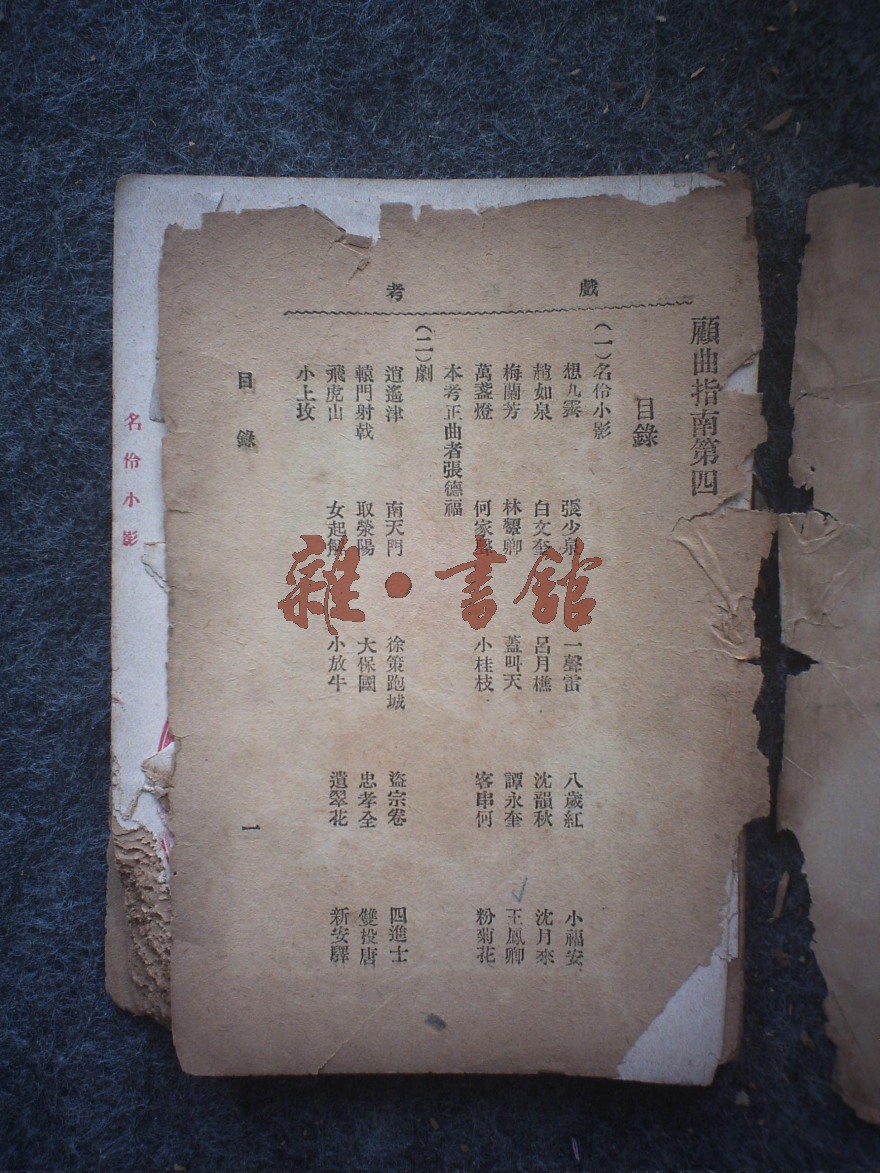 戲考
顧曲指南第四
目錄
(一)名伶小影
想九霄 張少泉 一聲雷 八歲紅 小福安
趙如泉 白文奎 呂月樵 沈韻秋 沈月來
梅蘭芳 林顰卿 蓋叫天 譚永奎 王鳳卿
萬盞燈 何家聲 小桂枝 客串何 粉菊花
本考正曲者張德福
(二)劇
逍遙津 南天門 徐策跑城 盜宗卷 四進士
轅門射戟 取滎陽 大保國 忠孝全 雙投唐
飛虎山 女起解 小放牛 遺翠花 新安驛
小上坟
目錄
一
名伶小影
雜·書館